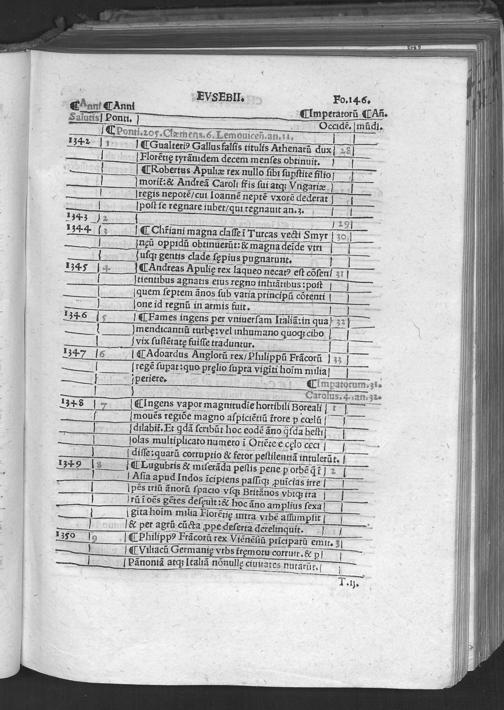 EVSEBII. Fo.146.
¶Anni ¶Anni ¶Imperatorū ¶Añ.
Salutis Ponti. Occidē. mūdi.
¶Ponti.205.Clæmens.6.Lemouiceñ.an.11.
1342 1 ¶Gualterꝰ Gallus falsis titulis Athenarū dux 28
Florētię tyrānidem decem menses obtinuit.
¶Robertus Apuliæ rex nullo sibi supstite filio
moriť: & Andreā Caroli fris sui atq; Vngariæ
regis nepotē/cui Ioannē neptē vxorē dederat
post se regnare iubet/qui regnauit an.3.
1343 2 29
1344 3 ¶Chřiani magna classe ī Turcas vecti Smyr 30
nęū oppidū obtinuerūt: & magna deīde vtri
usq; gentis clade sępius pugnarunt.
1345 4 ¶Andreas Apulię rex laqueo necatꝰ est cōsen 31
tientibus agnatis eius regno inhiātibus: post
quem septem ānos sub varia principū cōtenti
one id regnū in armis fuit.
1346 5 ¶Fames ingens per vniuersam Italiā: in qua 32
mendicantiū turbę: vel inhumano quoq; cibo
vix sustētatę fuisse traduntur.
1347 6 ¶Adoardus Anglorū rex/Philippū Frācorū 33
regē supat: quo pręlio supra vigīti hoīm milia
periere. ¶Imperatorum.31.
Carolus.4.an.32.
1348 7 ¶Ingens vapor magnitudīe horribili Boreali 1
moués regiōe magno aspiciētiū frore p cœlū
dilabiť. Et qdā scribūt hoc eodē āno qsda besti
olas multiplicato numero ī Oriēte e cęlo ceci
disse: quarū corruptio & fetor pestilentiā intulerūt.
1349 8 ¶Lugubris & miserāda pestis pene p orbē q̃ ī 2
Asia apud Indos īcipiens passiq; puīcias irre
pēs triū ānorū spacio vsq; Britānos vbiq; ira
rū ī oēs gētes desęuit: & hoc āno amplius sexa
gīta hoīm milia Florētię intra vrbē assumpsit
& per agrū cūcta ,ppe deserta derelinquit.
1350 9 ¶Philippꝰ Frācorū rex Viēnēsiū prīcipatū emit. 3
¶Viliacū Germanię vrbs fręmotu corruit. & p
Pānoniā atq; Italiā nōnullę ciuitates nutarūt.
T.ij.